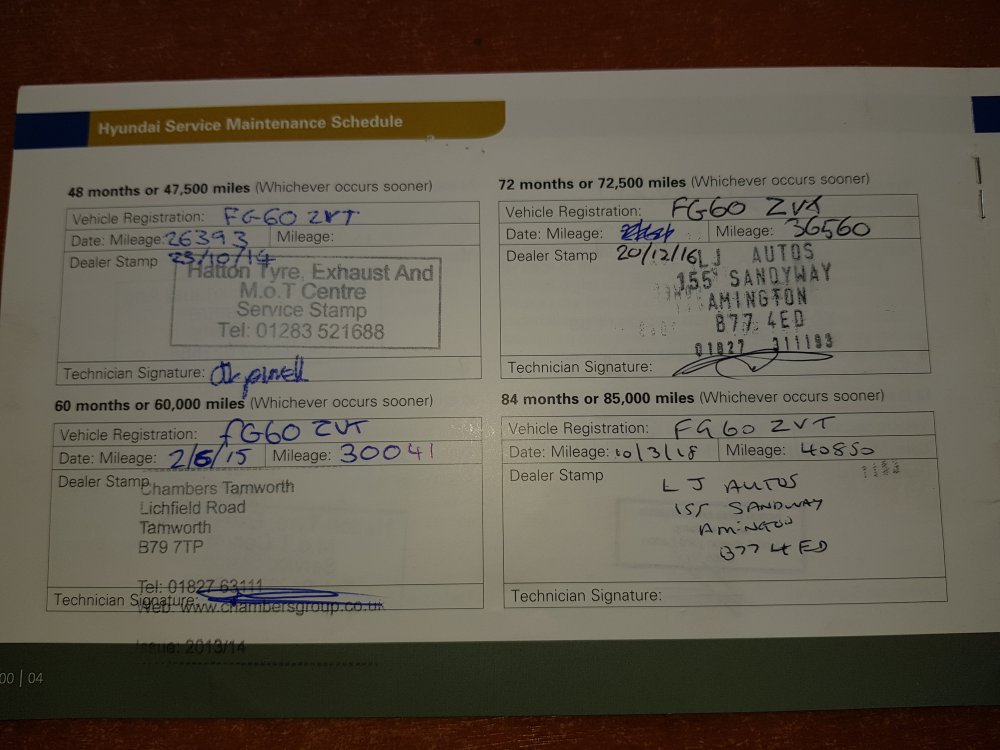 Hyundai Service Maintenance Schedule
48 months or 47,500 miles (Whichever occurs sooner)
Vehicle Registration: FG60 ZVT
Date: Mileage: 26393 Mileage:
Dealer Stamp 23/10/14
Hatton Tyre, Exhaust And
M.o.T Centre
Service Stamp
Tel: 01283 521688
Technician Signature:
60 months or 60,000 miles (Whichever occurs sooner)
Vehicle Registration: FG60 ZVT
Date: Mileage: 2/6/15 Mileage: 30041
Dealer Stamp
Chambers Tamworth
Lichfield Road
Tamworth
B79 7TP
Tel: 01827 63111
Technician Signature:
Web: www.chambersgroup.co.uk
Issue: 2013/14
72 months or 72,500 miles (Whichever occurs sooner)
Vehicle Registration: FG60 ZVT
Date: Mileage: Mileage: 36560
Dealer Stamp 20/12/16
LJ AUTOS
155 SANDYWAY
AMINGTON
B77 4ED
01827 311193
Technician Signature:
84 months or 85,000 miles (Whichever occurs sooner)
Vehicle Registration: FG60 ZVT
Date: Mileage: 10/3/18 Mileage: 40850
Dealer Stamp
L J AUTOS
155 SANDWAY
AMINGTON
B77 4ED
Technician Signature:
00 | 04